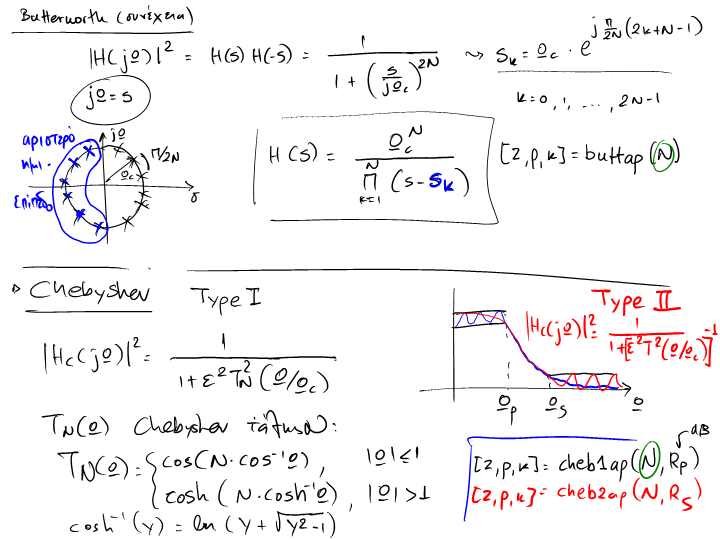 Butterworth (συνέχεια)
|H(jΩ)|² = H(s) H(-s) = 1 / (1 + (s/jΩc)^2N) ⤳ sk = Ωc · e^(j π/2N (2k+N-1))
jΩ = s
k=0, 1, ..., 2N-1
αριστερό
ημι-
επίπεδο
jΩ
π/2N
Ωc
σ
H(s) = Ωc^N / ∏_{k=1}^{N} (s - sk)
[z, p, k] = buttap (N)
▷ Chebyshev Type I
|Hc(jΩ)|² = 1 / (1+ε² T_N² (Ω/Ωc))
Type II
|Hc(jΩ)|² = 1 / (1+[ε²T²(Ω/Ωc)]^-1)
Ωp Ωs Ω
T_N(Ω) Chebyshev τάξης N:
T_N(Ω) = { cos(N·cos⁻¹Ω), |Ω|≤1
cosh (N·cosh⁻¹Ω), |Ω|>1
cosh⁻¹(y) = ln (y + √(y²-1))
dB
[z, p, k] = cheb1ap (N, Rp)
[z, p, k] = cheb2ap (N, Rs)